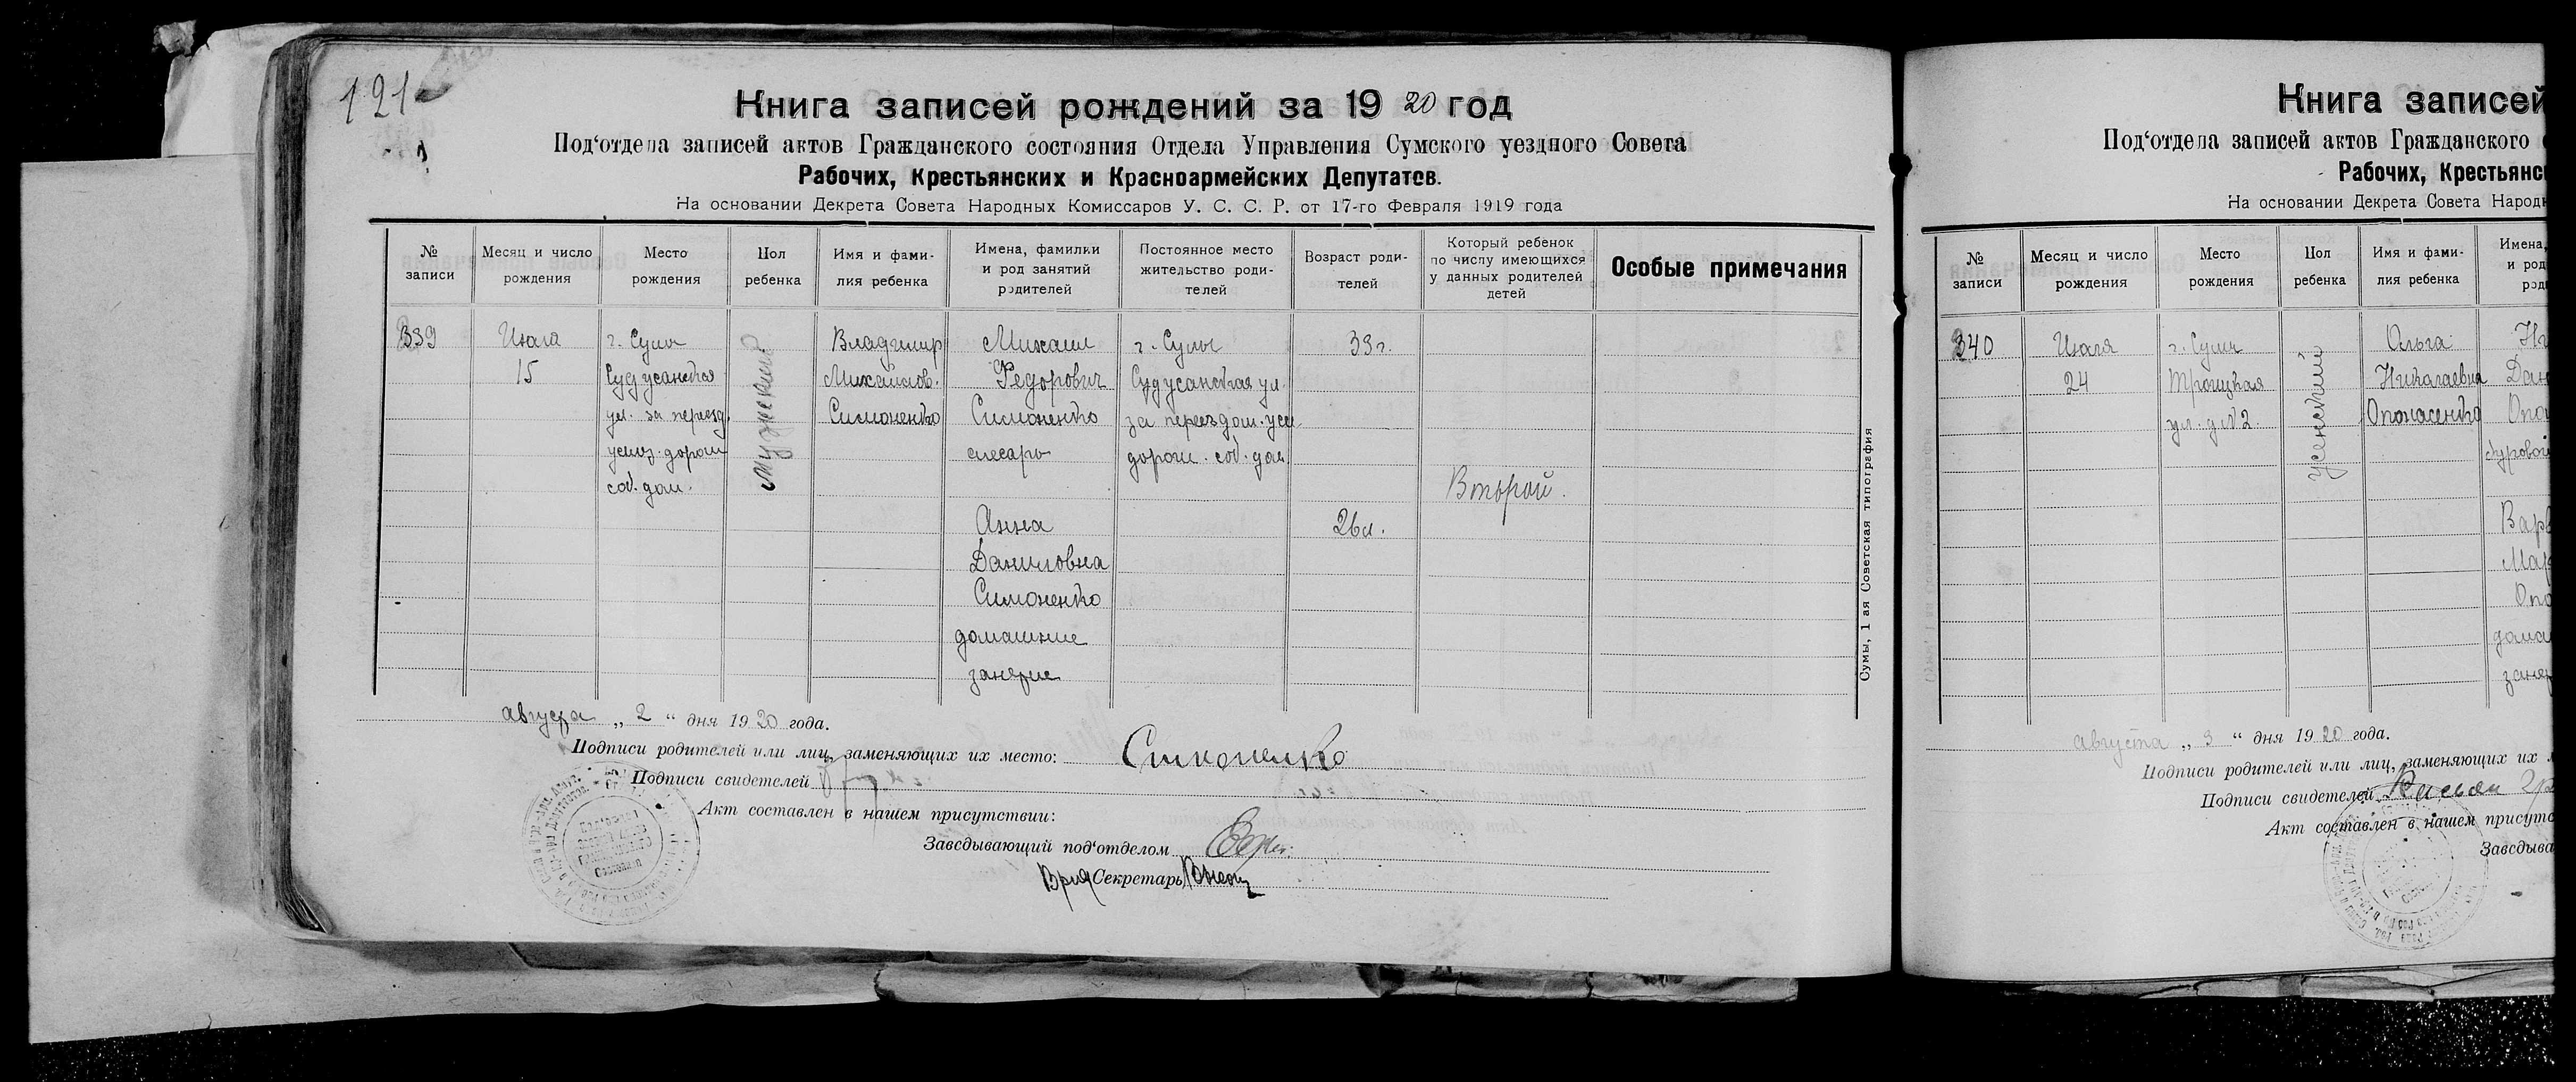 121
Книга записей рождений за 1920 год
Под‘отдела записей актов Гражданского состояния Отдела Управления Сумского уездного Совета
Рабочих, Крестьянских и Красноармейских Депутатов.
На основании Декрета Совета Народных Комиссаров У. С. С. Р. от 17-го Февраля 1919 года
№ записи
Месяц и число рождения
Место рождения
Пол ребенка
Имя и фами-
лия ребенка
Имена, фамилии
и род занятий
родителей
Постоянное место
жительство роди-
телей
Возраст роди-
телей
Который ребенок
по числу имеющихся
у данных родителей
детей
Особые примечания
339
Июля
15
г. Сумы
ул. за переезд.
собл. дом.
Мужской
Владимир
Михайлов.
Симоненко
Михаил
Федорович
Симоненко
слесарь
Анна
Даниловна
Симоненко
домашние
занятие
г. Сумы
за переездом
дороги. соб. дом.
33 г.
26 л.
Второй.
Сумы, 1 ая Советская типография
августа „ 2 “ дня 1920 года.
Подписи родителей или лиц, заменяющих их место: Симоненко
Подписи свидетелей
Акт составлен в нашем присутствии:
Заведывающий под‘отделом
Врид Секретарь
Книга записей
Под‘отдела записей актов Гражданского
Рабочих, Крестьянс
На основании Декрета Совета Народн
№ записи
Месяц и число рождения
Место рождения
Пол ребенка
Имя и фами-
лия ребенка
Имена,
и род
род
340
Июля
24
г. Сумы
Троицкая
ул. д. №2.
женский
Ольга
Николаевна
Опонасенко
Ни
Дан
Опон
Варв
Мар
Опо
дома
занят
августа „ 3 “ дня 1920 года.
Подписи родителей или лиц, заменяющих их
Подписи свидетелей
Акт составлен в нашем присутс
Заведыва